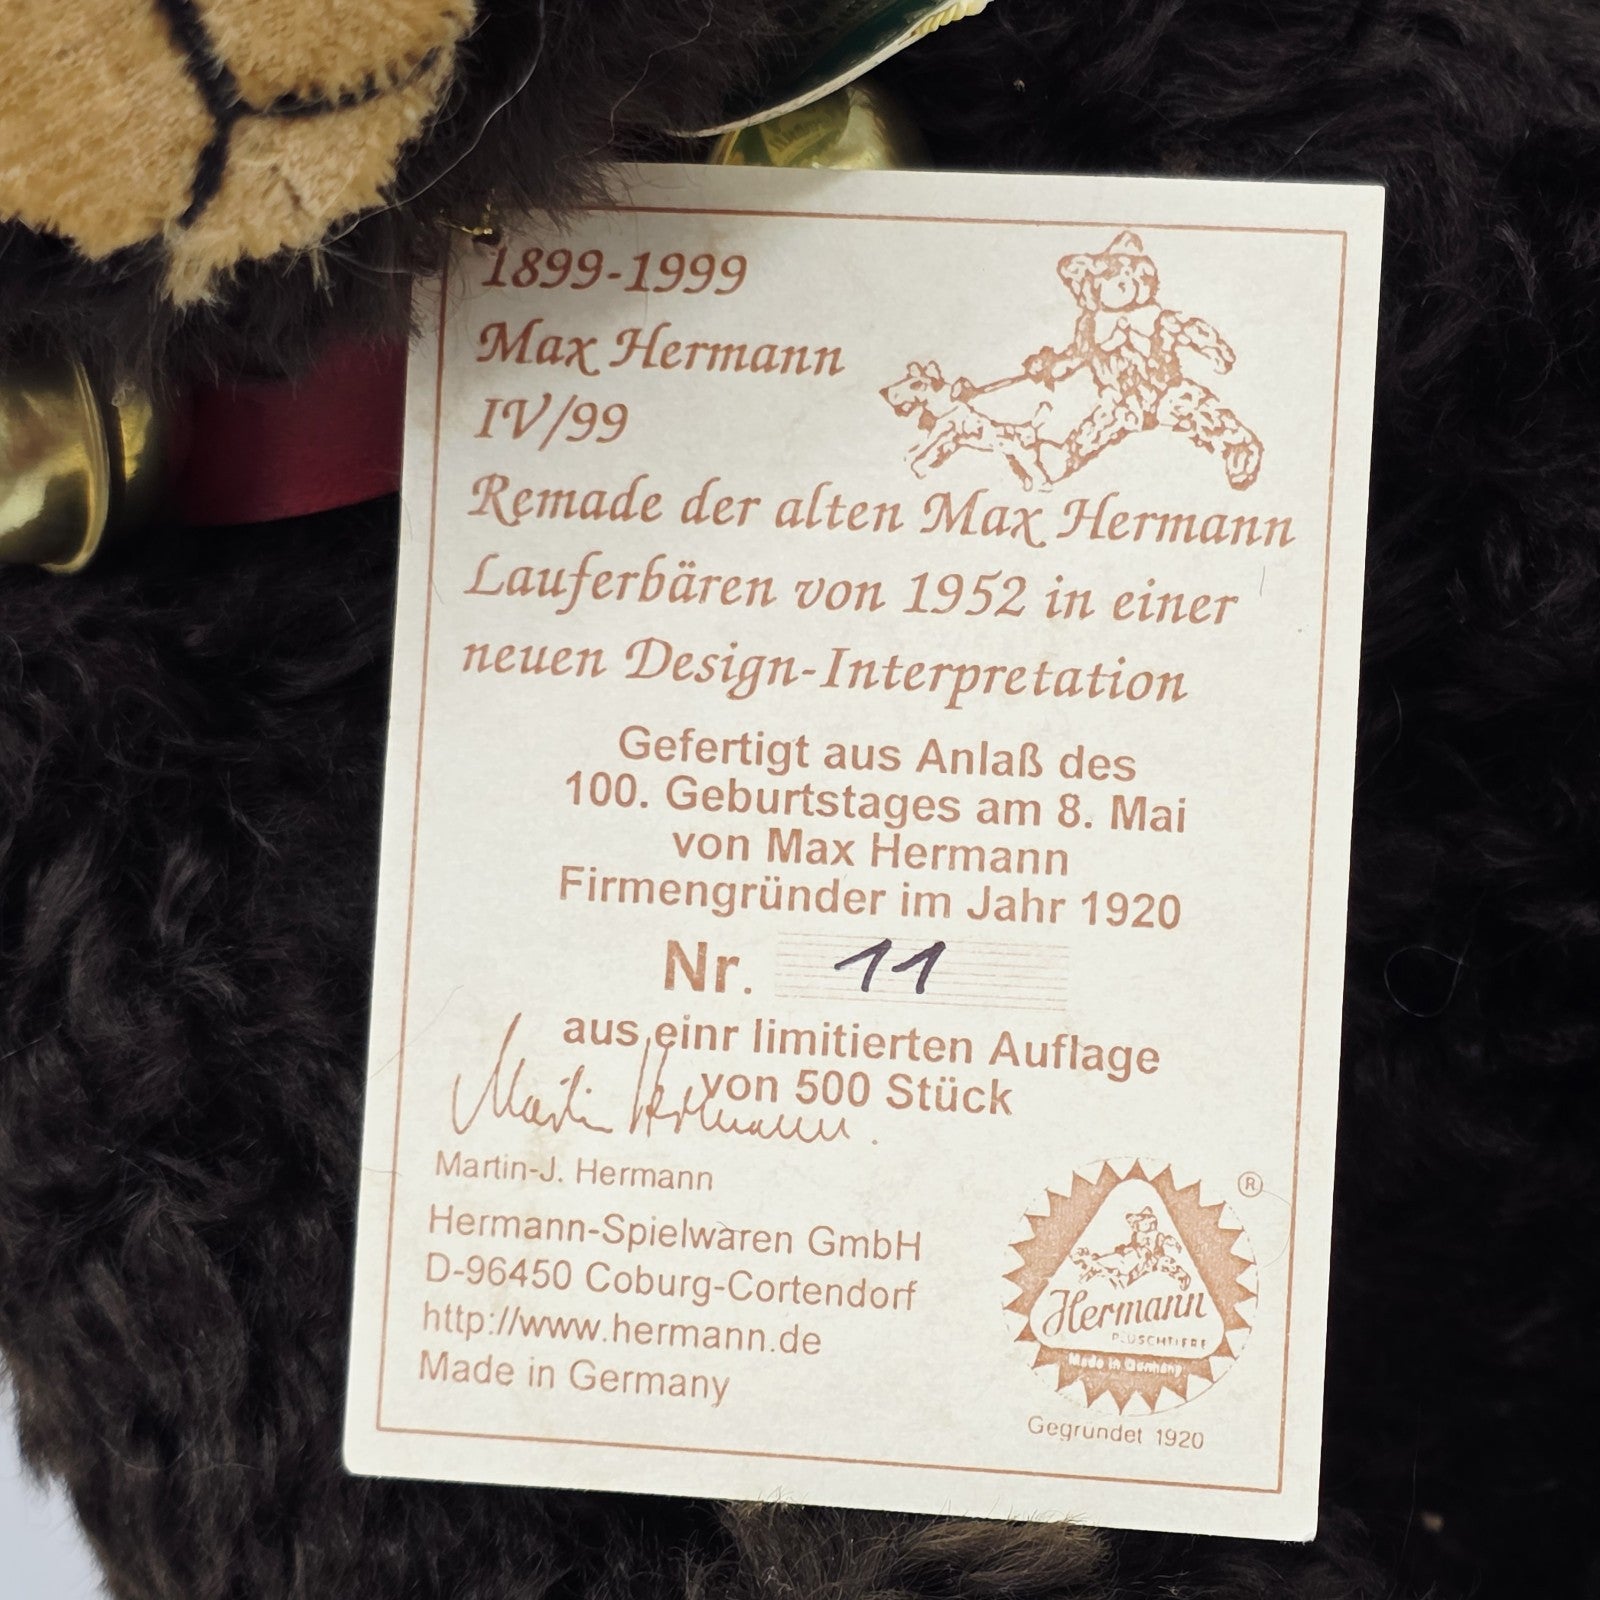 1899-1999
Max Hermann
IV/99
Remade der alten Max Hermann
Lauferbären von 1952 in einer
neuen Design-Interpretation
Gefertigt aus Anlaß des
100. Geburtstages am 8. Mai
von Max Hermann
Firmengründer im Jahr 1920
Nr. 11
aus einr limitierten Auflage
von 500 Stück
Martin Hermann.
Martin-J. Hermann
Hermann-Spielwaren GmbH
D-96450 Coburg-Cortendorf
http://www.hermann.de
Made in Germany
®
Hermann
PLÜSCHTIERE
Made in Germany
Gegründet 1920